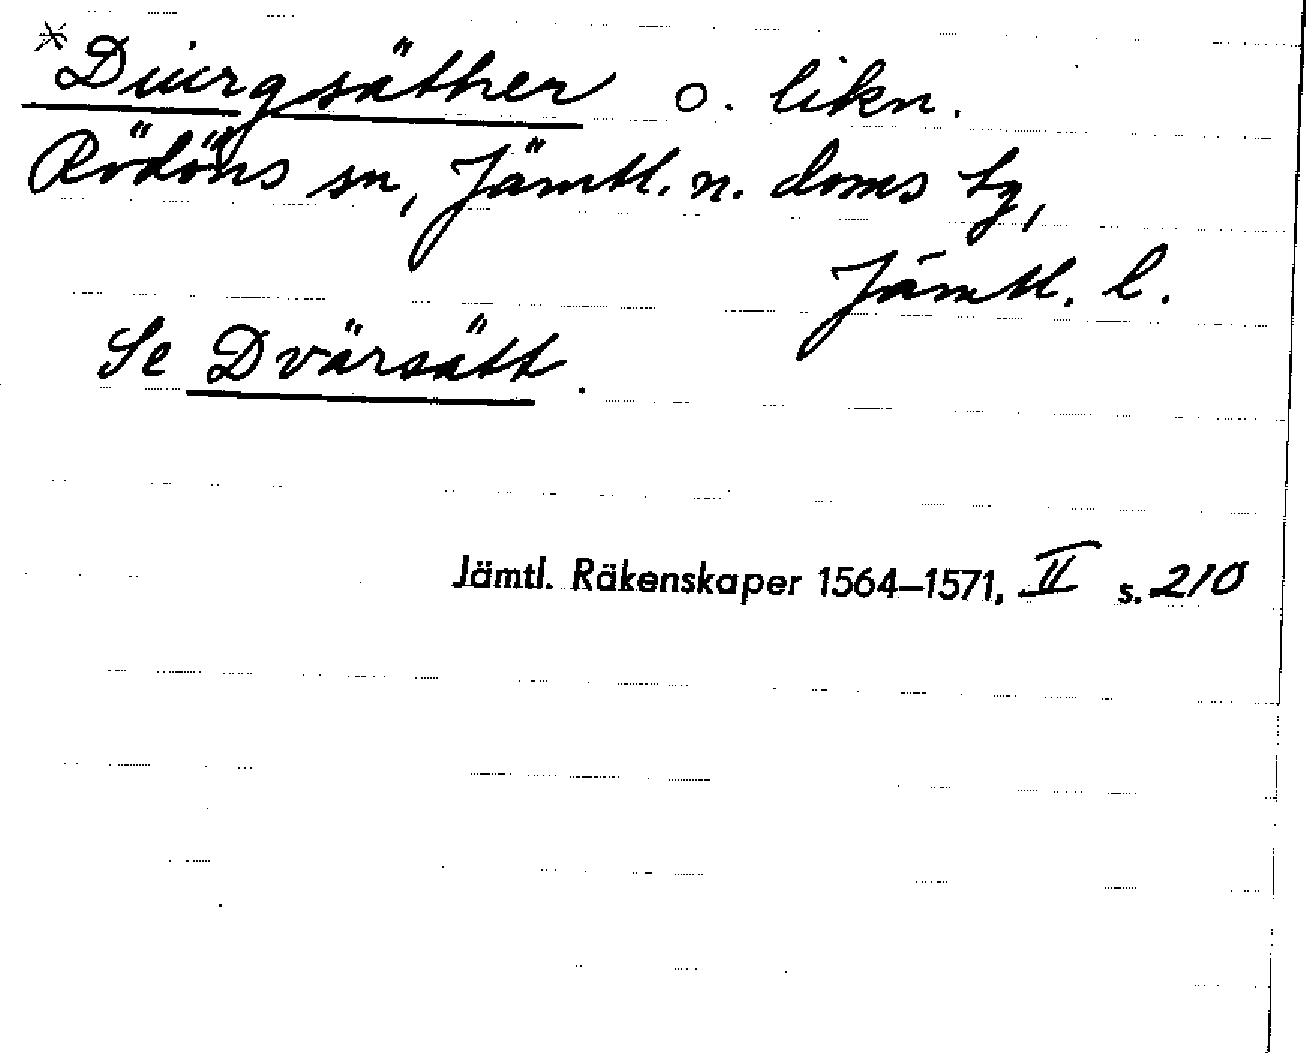 * Diurgsäther o. likn.
Rödöns sn, Jämtl. n. doms tg,
Jämtl. l.
Se Dvärsätt.
Jämtl. Räkenskaper 1564–1571, II s. 210